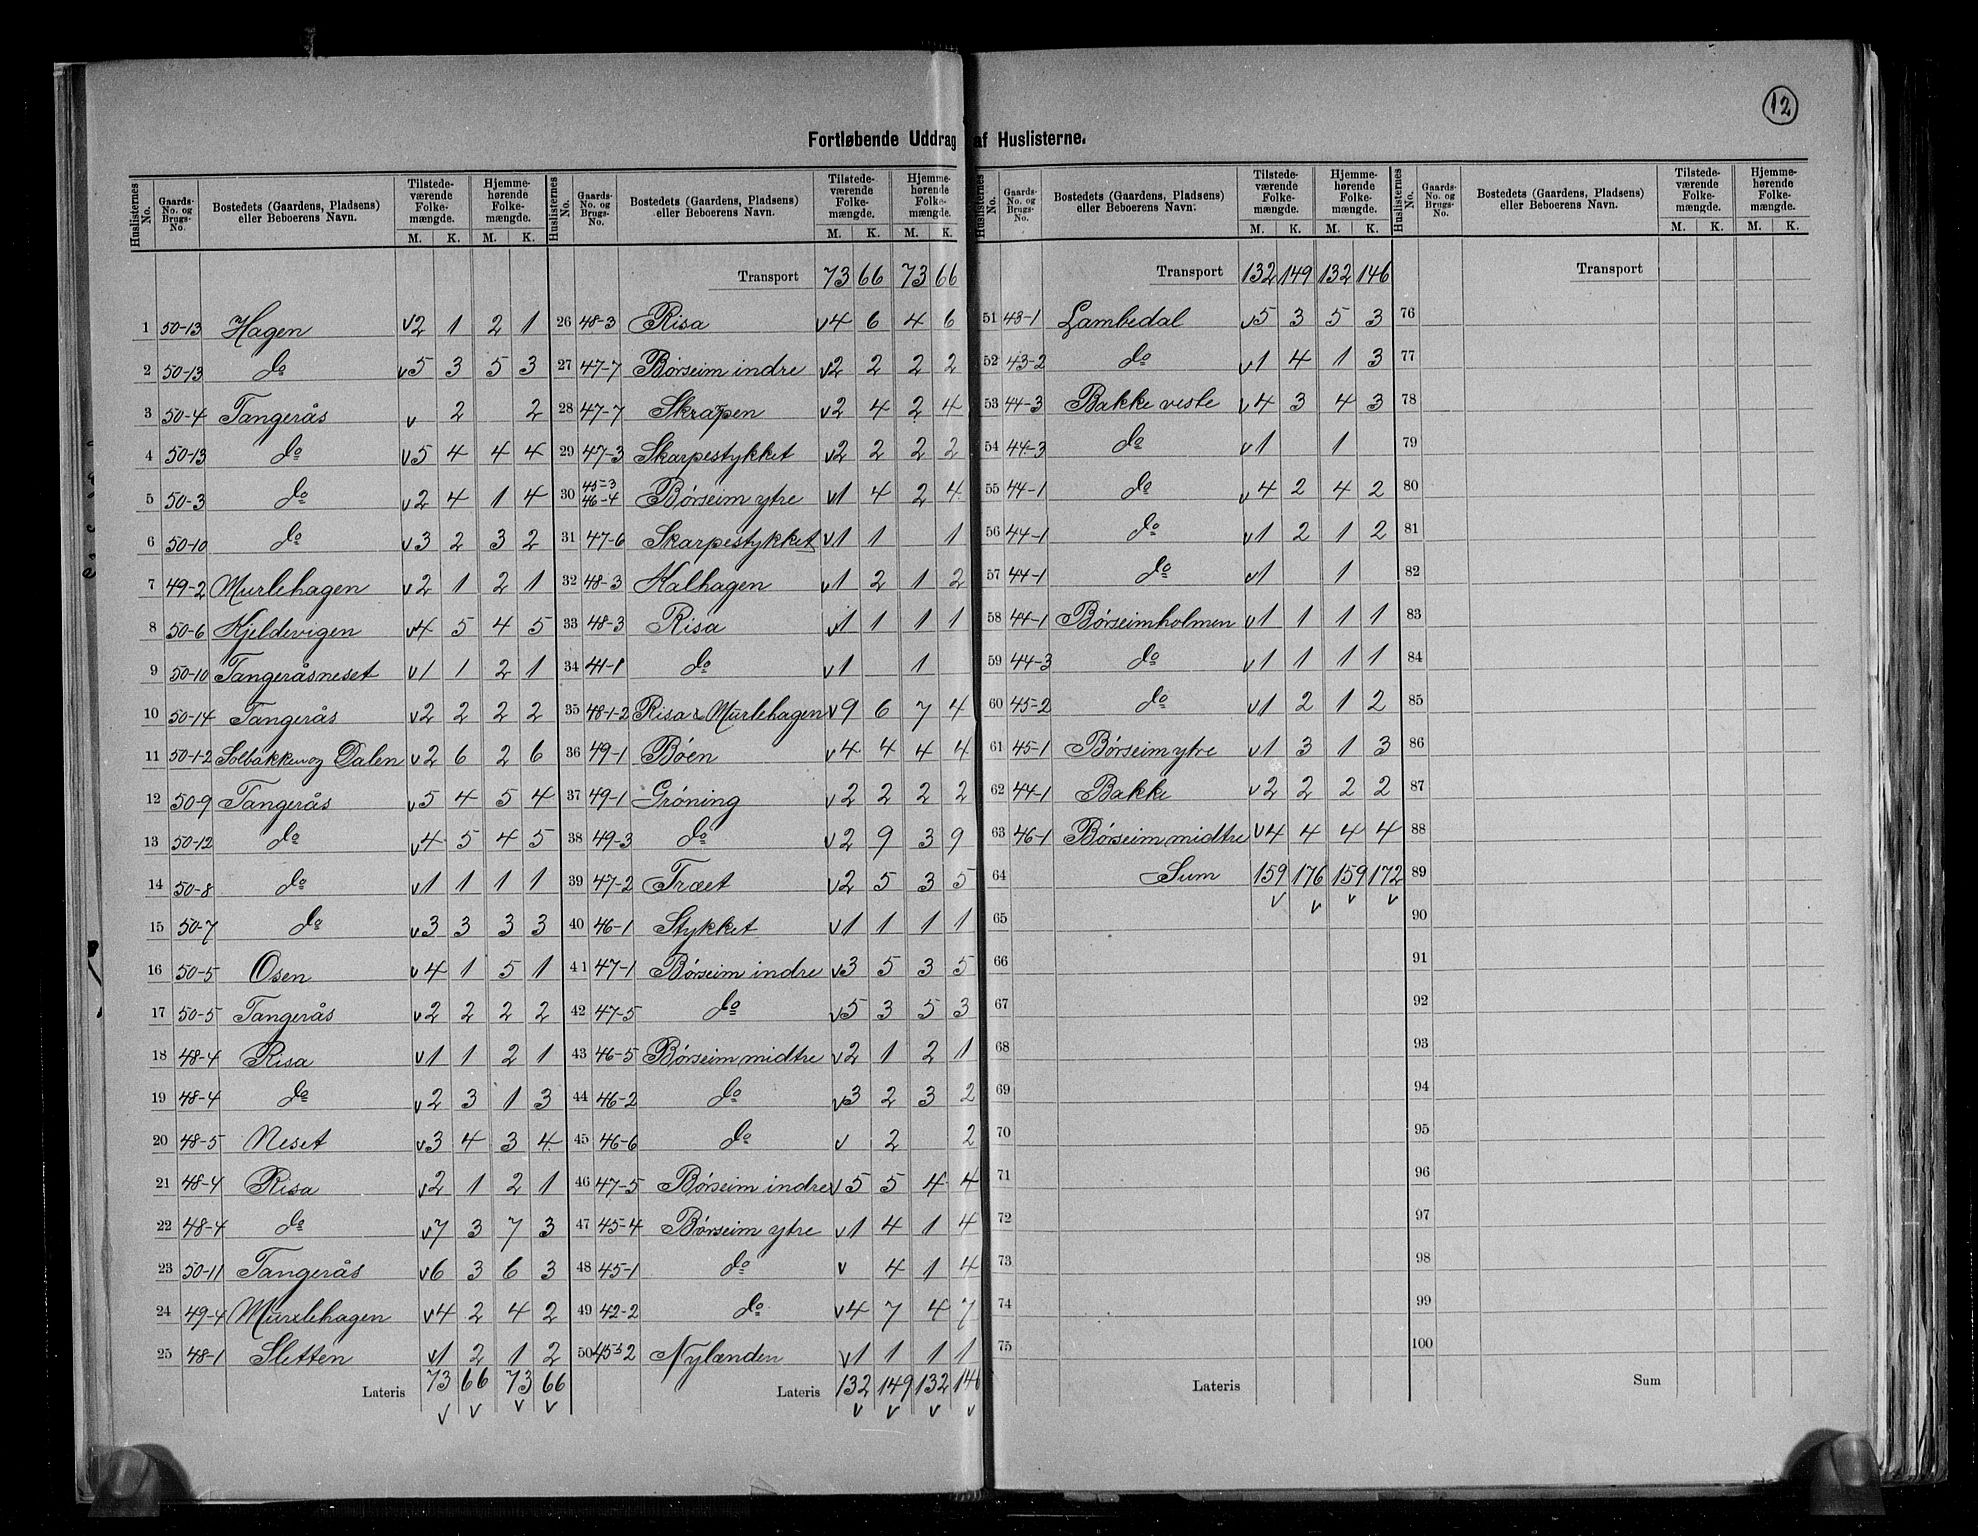 12
Fortløbende Uddrag af Huslisterne.
Huslisternes No. | Gaards-No. og Brugs-No. | Bostedets (Gaardens, Pladsens) eller Beboerens Navn. | Tilstedeværende Folkemængde. M. K. | Hjemmehørende Folkemængde. M. K.
1 50-13 Hagen v2 1 2 1
2 50-13 do v5 3 5 3
3 50-4 Tangerås v 2 2
4 50-13 do v5 4 4 4
5 50-3 do v2 4 1 4
6 50-10 do v3 2 3 2
7 49-2 Murlehagen v2 1 2 1
8 50-6 Kjeldevigen v4 5 4 5
9 50-10 Tangeråsneset v1 1 2 1
10 50-14 Tangerås v2 2 2 2
11 50-1-2 Solbakken og Dalen v2 6 2 6
12 50-9 Tangerås v5 4 5 4
13 50-12 do v4 5 4 5
14 50-8 do v1 1 1 1
15 50-7 do v3 3 3 3
16 50-5 Osen v4 1 5 1
17 50-5 Tangerås v2 2 2 2
18 48-4 Risa v1 1 2 1
19 48-4 do v2 3 1 3
20 48-5 Neset v3 4 3 4
21 48-4 Risa v2 1 2 1
22 48-4 do v7 3 7 3
23 50-11 Tangerås v6 3 6 3
24 49-4 Murlehagen v4 2 4 2
25 48-1 Sletten v1 2 1 2
Lateris 73 66 73 66
v v v v
Huslisternes No. | Gaards-No. og Brugs-No. | Bostedets (Gaardens, Pladsens) eller Beboerens Navn. | Tilstedeværende Folkemængde. M. K. | Hjemmehørende Folkemængde. M. K.
Transport 73 66 73 66
26 48-3 Risa v4 6 4 6
27 47-7 Børseim indre v2 2 2 2
28 47-7 Skrapen v2 4 2 4
29 47-3 Skarpestykket v2 2 2 2
30 45-3 46-4 Børseim ytre v1 4 2 4
31 47-6 Skarpestykket v1 1 1
32 48-3 Kalhagen v1 2 1 2
33 48-3 Risa v1 1 1 1
34 41-1 do v1 1
35 48-1-2 Risa & Murlehagen v9 6 7 4
36 49-1 Bøen v4 4 4 4
37 49-1 Grøning v2 2 2 2
38 49-3 do v2 9 3 9
39 47-2 Træet v2 5 3 5
40 46-1 Stykket v1 1 1 1
41 47-1 Børseim indre v3 5 3 5
42 47-5 do v5 3 5 3
43 46-5 Børseim midtre v2 1 2 1
44 46-2 do v3 2 3 2
45 46-6 do v 2 2
46 47-5 Børseim indre v5 5 4 4
47 45-4 Børseim ytre v1 4 1 4
48 45-1 do v 4 1 4
49 42-2 do v4 7 4 7
50 45-2 Nylænden v1 1 1 1
Lateris 132 149 132 146
v v v v
Huslisternes No. | Gaards-No. og Brugs-No. | Bostedets (Gaardens, Pladsens) eller Beboerens Navn. | Tilstedeværende Folkemængde. M. K. | Hjemmehørende Folkemængde. M. K.
Transport 132 149 132 146
51 43-1 Lambedal v5 3 5 3
52 43-2 do v1 4 1 3
53 44-3 Bakke veste v4 3 4 3
54 44-3 do v1 1
55 44-1 do v4 2 4 2
56 44-1 do v1 2 1 2
57 44-1 do v1 1
58 44-1 Børseimholmen v1 1 1 1
59 44-3 do v1 1 1 1
60 45-2 do v1 2 1 2
61 45-1 Børseim ytre v1 3 1 3
62 44-1 Bakke v2 2 2 2
63 46-1 Børseim midtre v4 4 4 4
64 Sum 159 176 159 172
v v v v
65
66
67
68
69
70
71
72
73
74
75
Lateris
Huslisternes No. | Gaards-No. og Brugs-No. | Bostedets (Gaardens, Pladsens) eller Beboerens Navn. | Tilstedeværende Folkemængde. M. K. | Hjemmehørende Folkemængde. M. K.
Transport
76
77
78
79
80
81
82
83
84
85
86
87
88
89
90
91
92
93
94
95
96
97
98
99
100
Sum